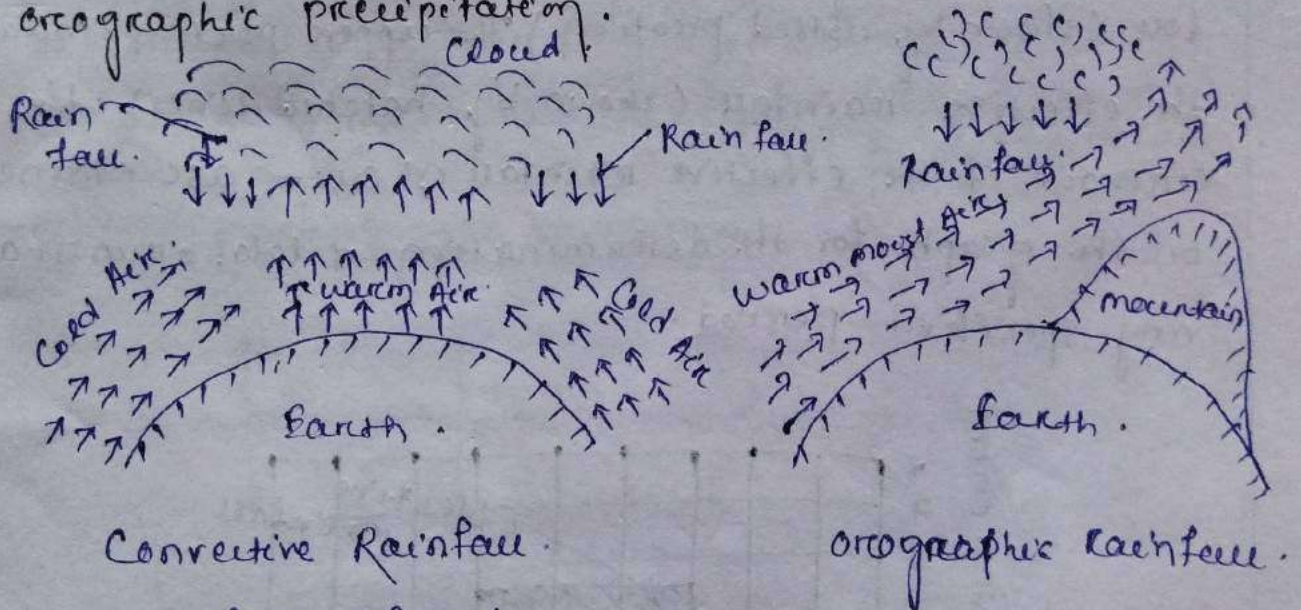 orographic precipitation.
Cloud
Rain
fall.
Rainfall.
Cold Air
Warm Air
Cold Air
Earth.
Convective Rainfall.
Rainfall
Warm moist Air
mountain
Earth.
orographic Rainfall.